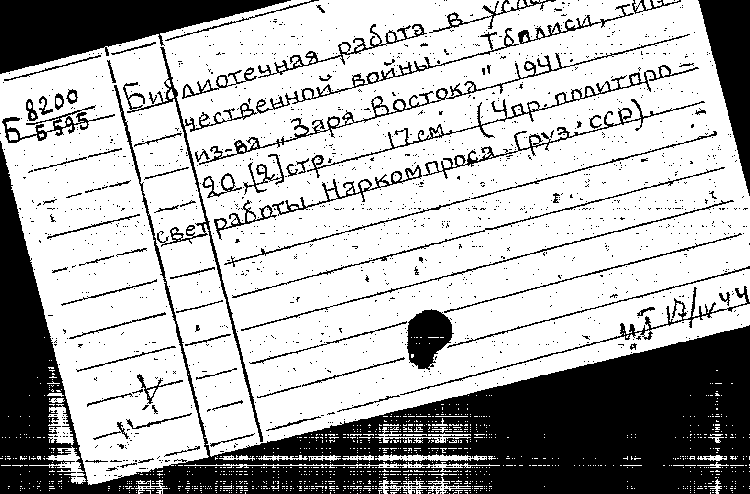 8200
Б 5595
Библиотечная работа в усло
чественной войны. Тбилиси, тип.
из-ва „Заря Востока", 1941.
20, [2] стр. 17 см. (Упр. политпро-
свет работы Наркомпроса Груз. ССР).
цб 17/IV 44